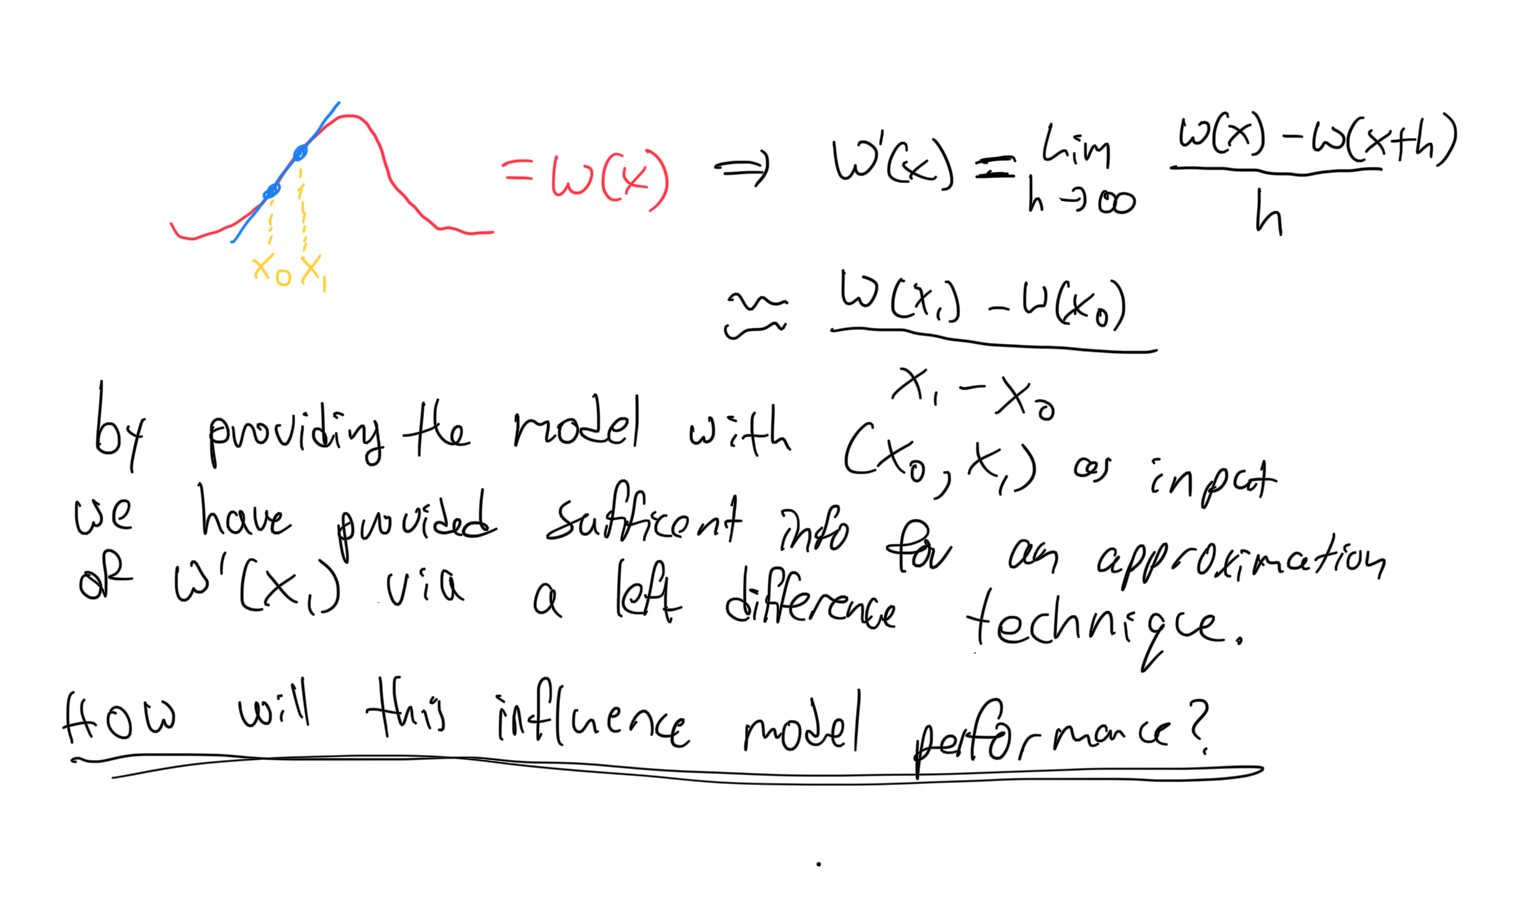 = W(x) ⇒ W'(x) = lim h→∞ (W(x) - W(x+h)) / h
x₀ x₁
≈ (W(x₁) - W(x₀)) / (x₁ - x₀)
by providing the model with (x₀, x₁) as input
we have provided sufficent info for an approximation
of W'(x₁) via a left difference technique.
How will this influence model performance?